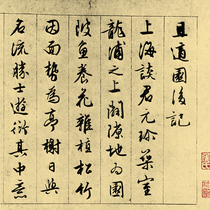 且適園後記
上海談君元珍築室
龍浦之上闢隙地為園
陂魚養花雜植松竹
因面勢為亭榭日與
名流勝士遊衍其中